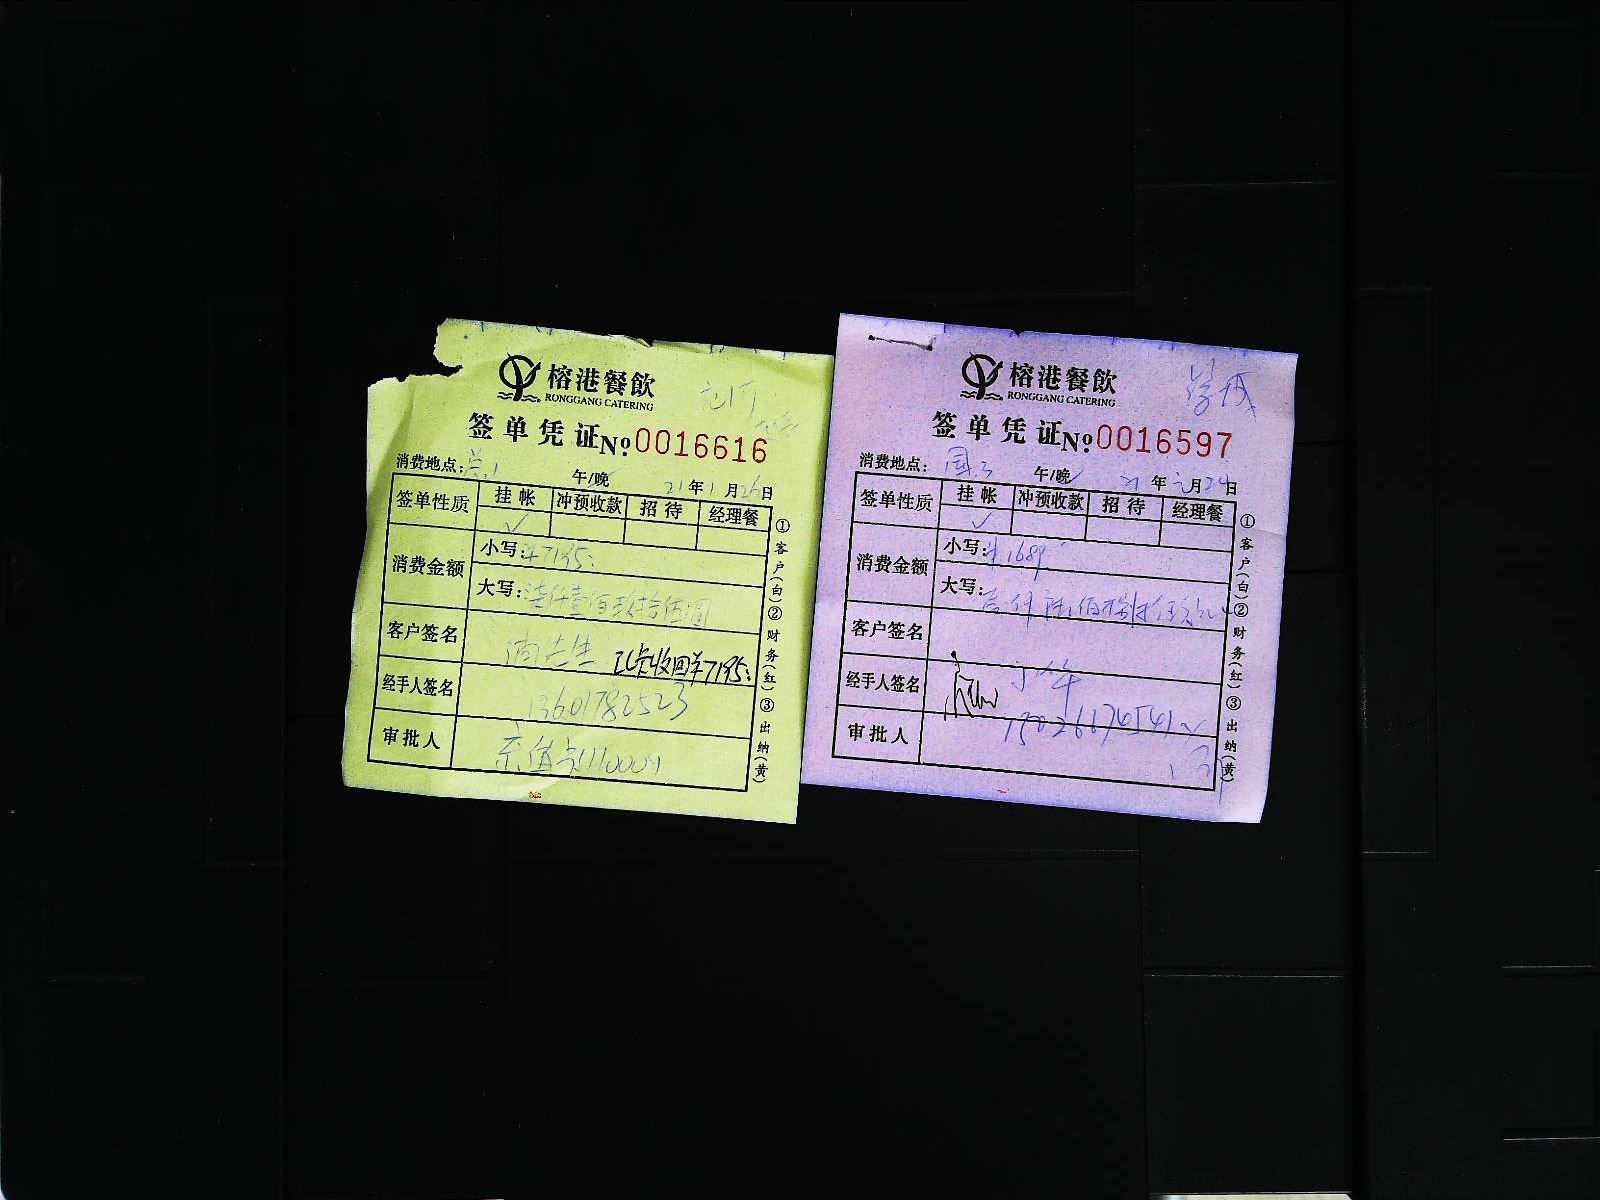 榕港餐飲
RONGGANG CATERING
签单凭证 No 0016616
消费地点: 午/晚 21年1月26日
签单性质 挂帐 冲预收款 招待 经理餐
✓
消费金额 小写: ¥7195:
大写: 柒仟壹佰玖拾伍圆
客户签名
先生 收回¥7195:
经手人签名 13601782523
审批人
①客户(白)②财务(红)③出纳(黄)
榕港餐飲
RONGGANG CATERING
签单凭证 No 0016597
消费地点: 午/晚 21年 月24日
签单性质 挂帐 冲预收款 招待 经理餐
✓
消费金额 小写: ¥1689
大写:
客户签名
经手人签名
审批人
①客户(白)②财务(红)③出纳(黄)